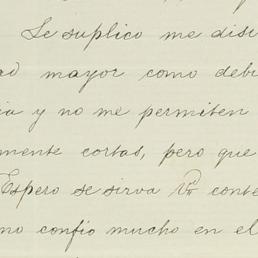 Se suplico me dis
ad mayor como deb
ia y no me permiten
mente cortas, pero que
Espero se sirva Vd conte
no confio mucho en el